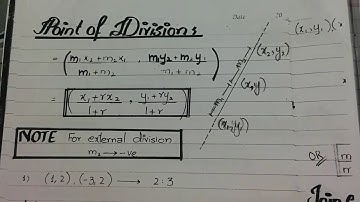 Point of Divisions
Date
= ( m₁x₂+m₂x₁ / m₁+m₂ , m₁y₂+m₂y₁ / m₁+m₂ )
= ( x₁+rx₂ / 1+r , y₁+ry₂ / 1+r )
NOTE For external division
m₂ → -ve
1) (1,2), (-3,2) → 2:3
(x₂,y₂)
m₂
(x,y)
m₁
(x₁,y₁)
(x₁,y₁)
OR
m
n